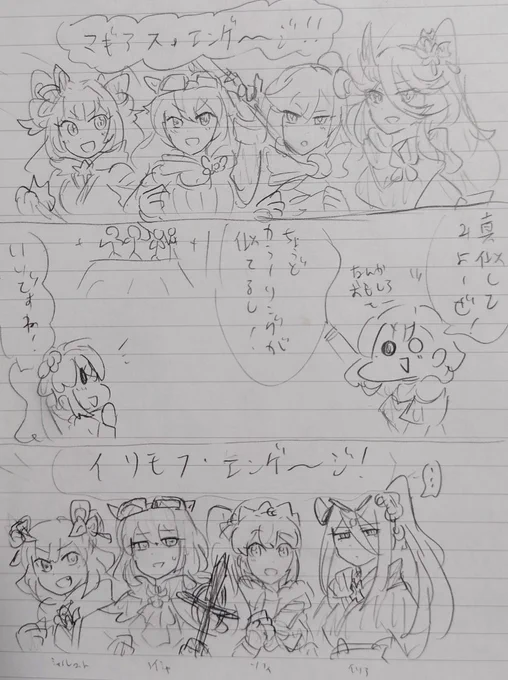 マギアス・エンゲ〜ジ!!
真似して
みよーぜ
なんか
おもしろ
ちょうど
カラーリングが
似てるし!
いいですわね!
イリモフ・エンゲ〜ジ!
…